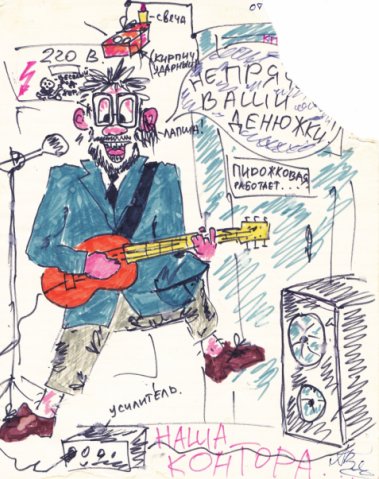 свеча
09
220 В
кирпич
ударный
НЕ ПРЯ
ВАШИ
ДЕНЮЖКИ!
лапша!
ПИРОЖКОВАЯ
РАБОТАЕТ...
УСИЛИТЕЛЬ.
НАША
КОНТОРА.